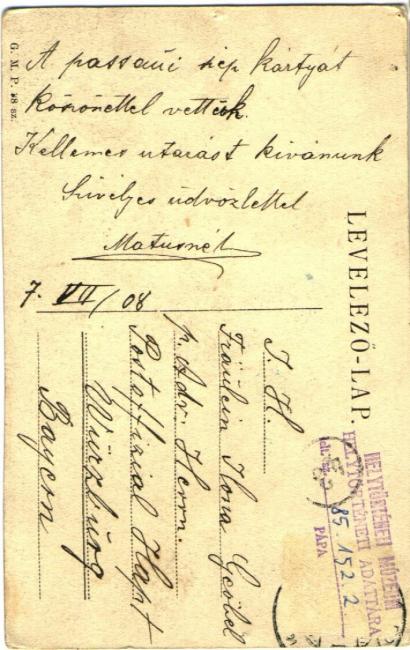 A passaui szép kártyát
köszönettel vettük.
Kellemes utazást kivánunk
Szivélyes üdvözlettel
Matusnél
7. VII/08
G. M. P. sz.
LEVELEZŐ-LAP.
T. H.
Fräulein Ilona
p. Adr. Herrn.
Postoffizial
Würzburg
Bayern
HELYTÖRTÉNETI MÚZEUM
HELYTÖRTÉNETI ADATTÁRA
85.152.2
PÁPA